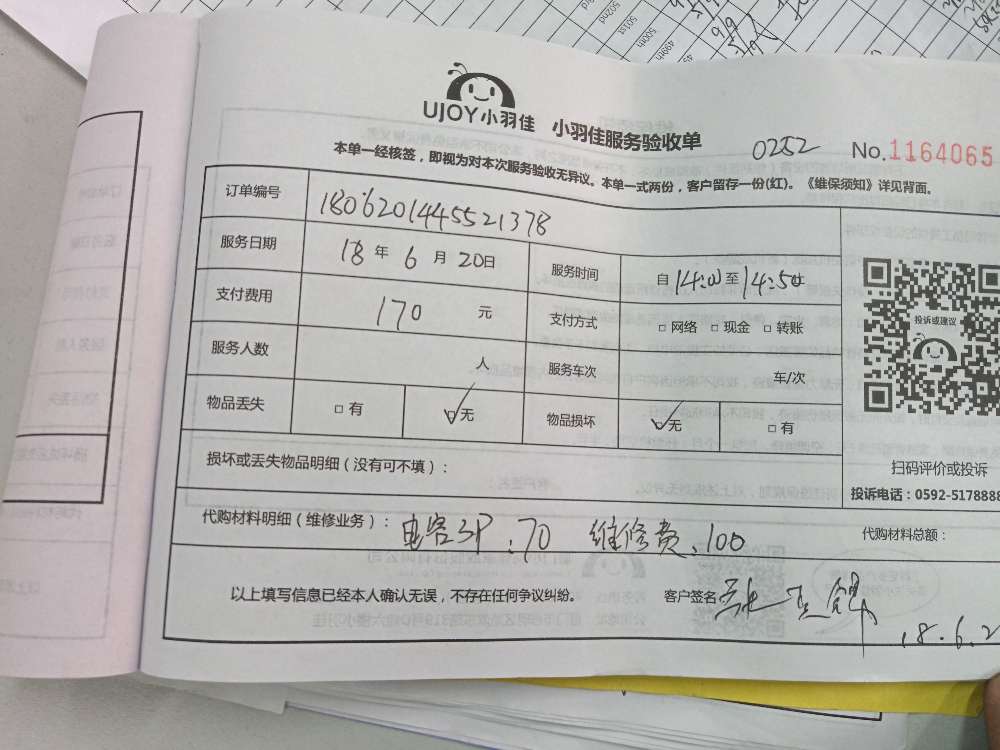 502nd
501st
500th
499th
UJOY小羽佳 小羽佳服务验收单 0252 No.1164065
本单一经核签，即视为对本次服务验收无异议。本单一式两份，客户留存一份(红)。《维保须知》详见背面。
订单编号 1806201445521378
服务日期 18 年 6 月 20日 服务时间 自 14:00 至 14:50
支付费用 170 元 支付方式 □ 网络 □ 现金 □ 转账
服务人数 人 服务车次 车/次
物品丢失 □ 有 ☑ 无 物品损坏 ☑ 无 □ 有
投诉或建议
损坏或丢失物品明细（没有可不填）：
扫码评价或投诉
投诉电话：0592-5178888
代购材料明细（维修业务）： 电容3P：70 维修费：100 代购材料总额：
以上填写信息已经本人确认无误，不存在任何争议纠纷。 客户签名
18.6.2